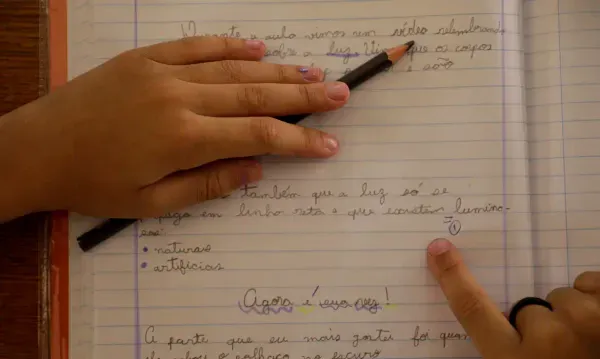 Durante a aula vimos um vídeo relembrando
sobre a luz. Vimos que os corpos
e são
também que a luz só se
propaga em linha reta e que existem lumino-
sos:
① 
• naturais
• artificiais
Agora é sua vez!
A parte que eu mais gostei foi quan
o palhaço no escuro